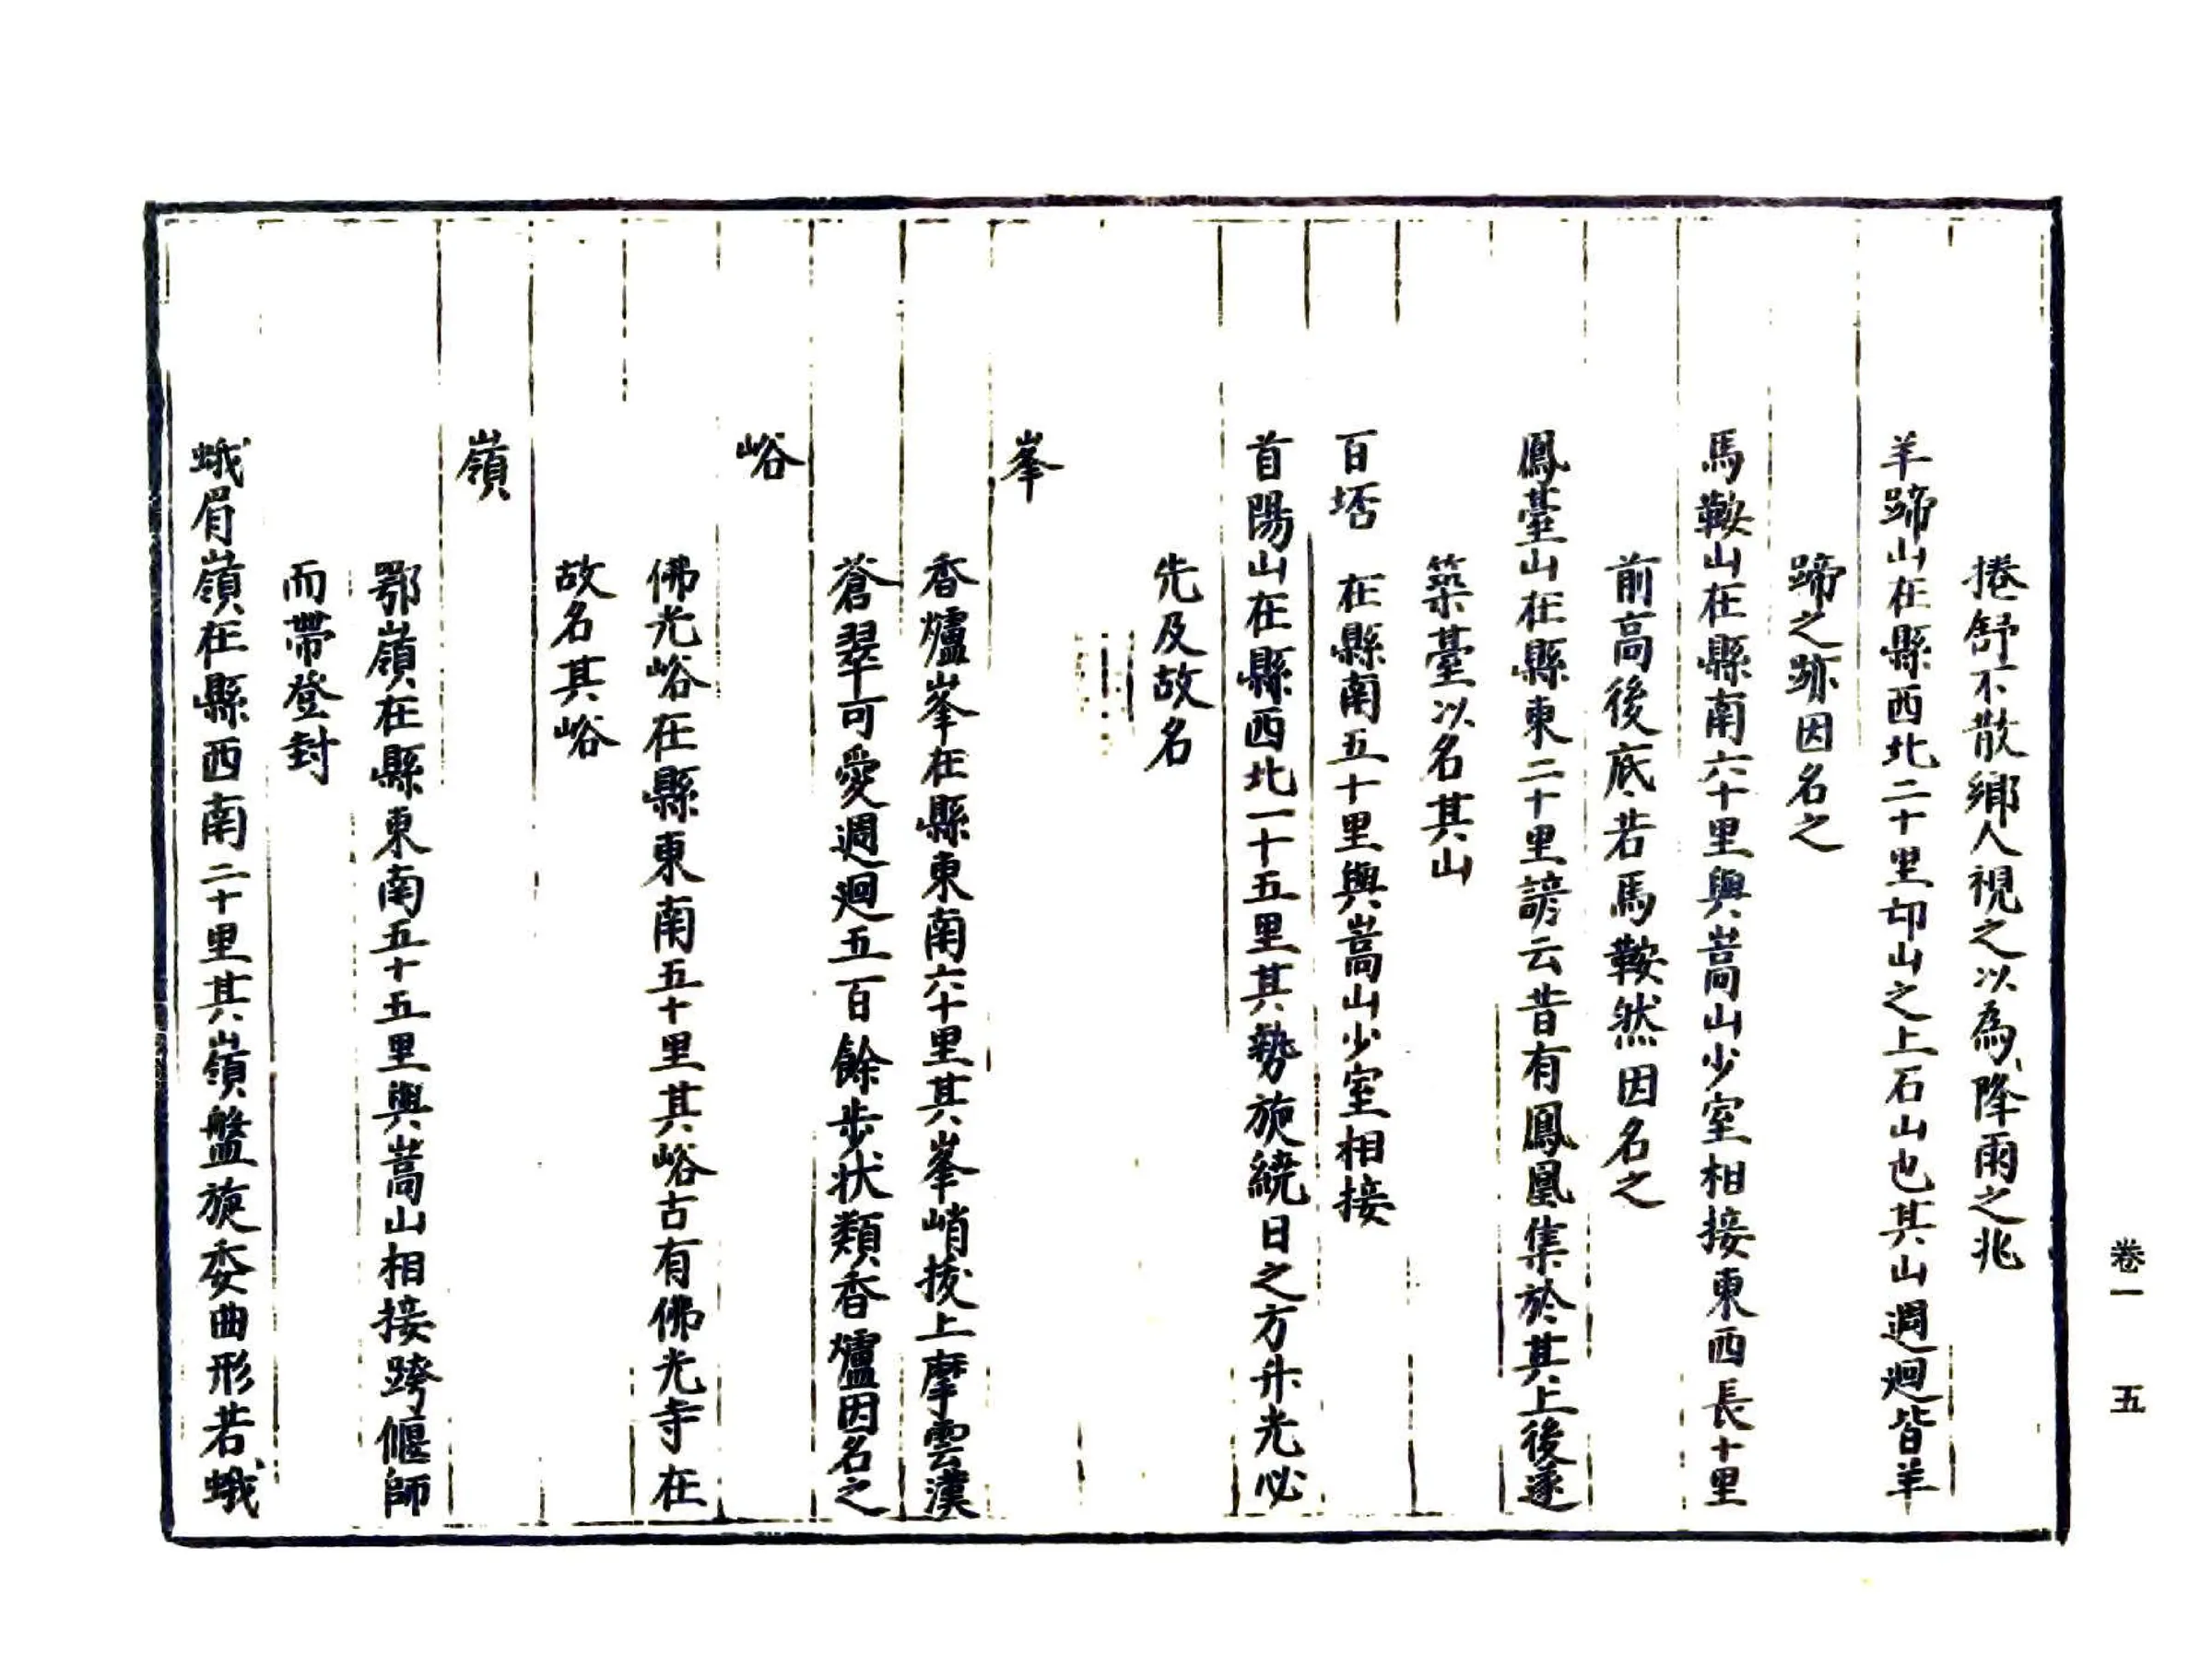 捲舒不散鄉人視之以為降雨之兆
羊蹄山在縣西北二十里邙山之上石山也其山週迴皆羊
蹄之跡因名之
馬鞍山在縣南六十里與嵩山少室相接東西長十里
前高後底若馬鞍然因名之
鳳臺山在縣東二十里諺云昔有鳳凰集於其上後遂
築臺以名其山
百坯 在縣南五十里與嵩山少室相接
首陽山在縣西北一十五里其勢旋繞日之方升光必
先及故名
峯
香爐峯在縣東南六十里其峯峭拔上摩雲漢
蒼翠可愛週迴五百餘步狀類香爐因名之
峪
佛光峪在縣東南五十里其峪古有佛光寺在
故名其峪
嶺
鄂嶺在縣東南五十五里與嵩山相接跨偃師
而帶登封
蛾眉嶺在縣西南二十里其嶺盤旋委曲形若蛾
卷一 五